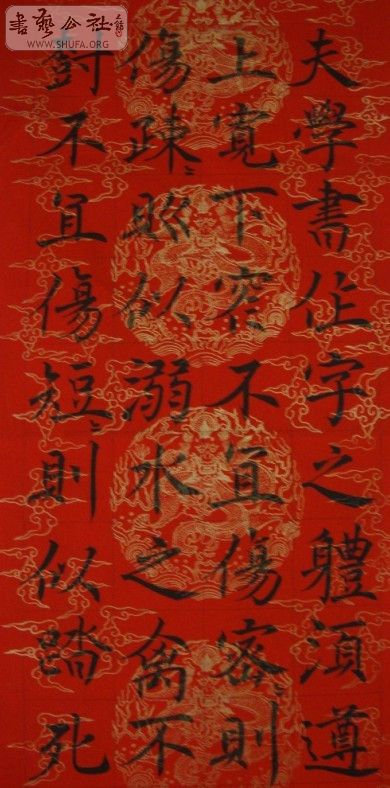 書藝公社
WWW.SHUFA.ORG
夫學書作字之體須遵
上寬下窄不宜傷密〻則
傷疎〻似溺水之禽不
不宜傷短〻則似踏死